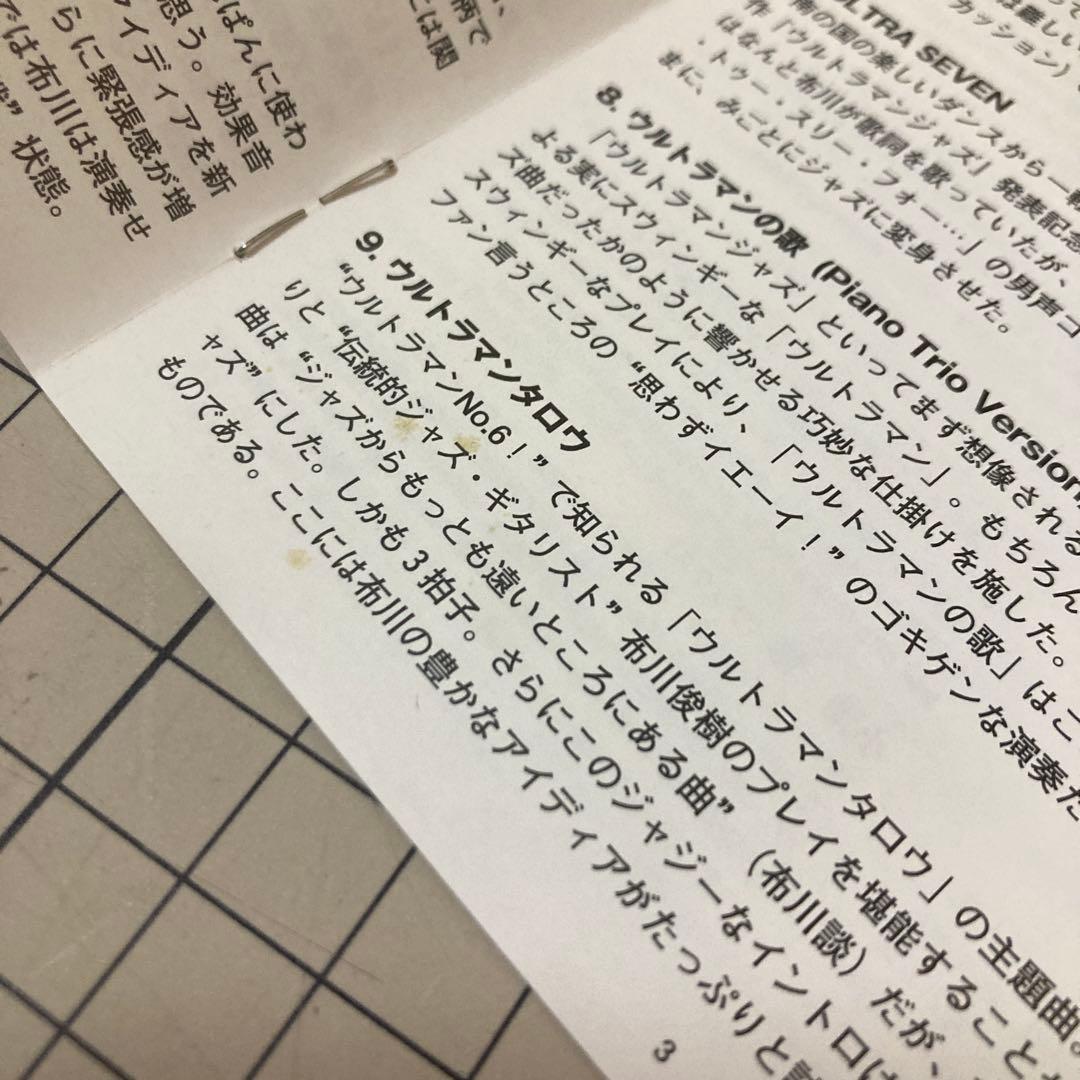 柄で
は関
ぱんに使わ
思う。効果音
イディアを新
らに緊張感が増
では布川は演奏せ
状態。
カッション）
ULTRA SEVEN
の国の楽しいダンスから一転
作『ウルトラマンジャズ』発表記念
はなんと布川が歌詞を歌っていたが、
・トゥー・スリー・フォー…」の男声コ
まに、みごとにジャズに変身させた。
8. ウルトラマンの歌 (Piano Trio Version
『ウルトラマンジャズ』といってまず想像される
よる実にスウィンギーな「ウルトラマン」。もちろん
ズ曲だったかのように響かせる巧妙な仕掛けを施した。
スウィンギーなプレイにより、「ウルトラマンの歌」はこ
ファン言うところの“思わずイエーイ！”のゴキゲンな演奏だ
9. ウルトラマンタロウ
“ウルトラマンNo.6！”で知られる「ウルトラマンタロウ」の主題曲。
りと“伝統的ジャズ・ギタリスト”布川俊樹のプレイを堪能すること
曲は“ジャズからもっとも遠いところにある曲”（布川談）だが、
ャズ”にした。しかも3拍子。さらにこのジャジーなイントロは
ものである。ここには布川の豊かなアイディアがたっぷりと
3